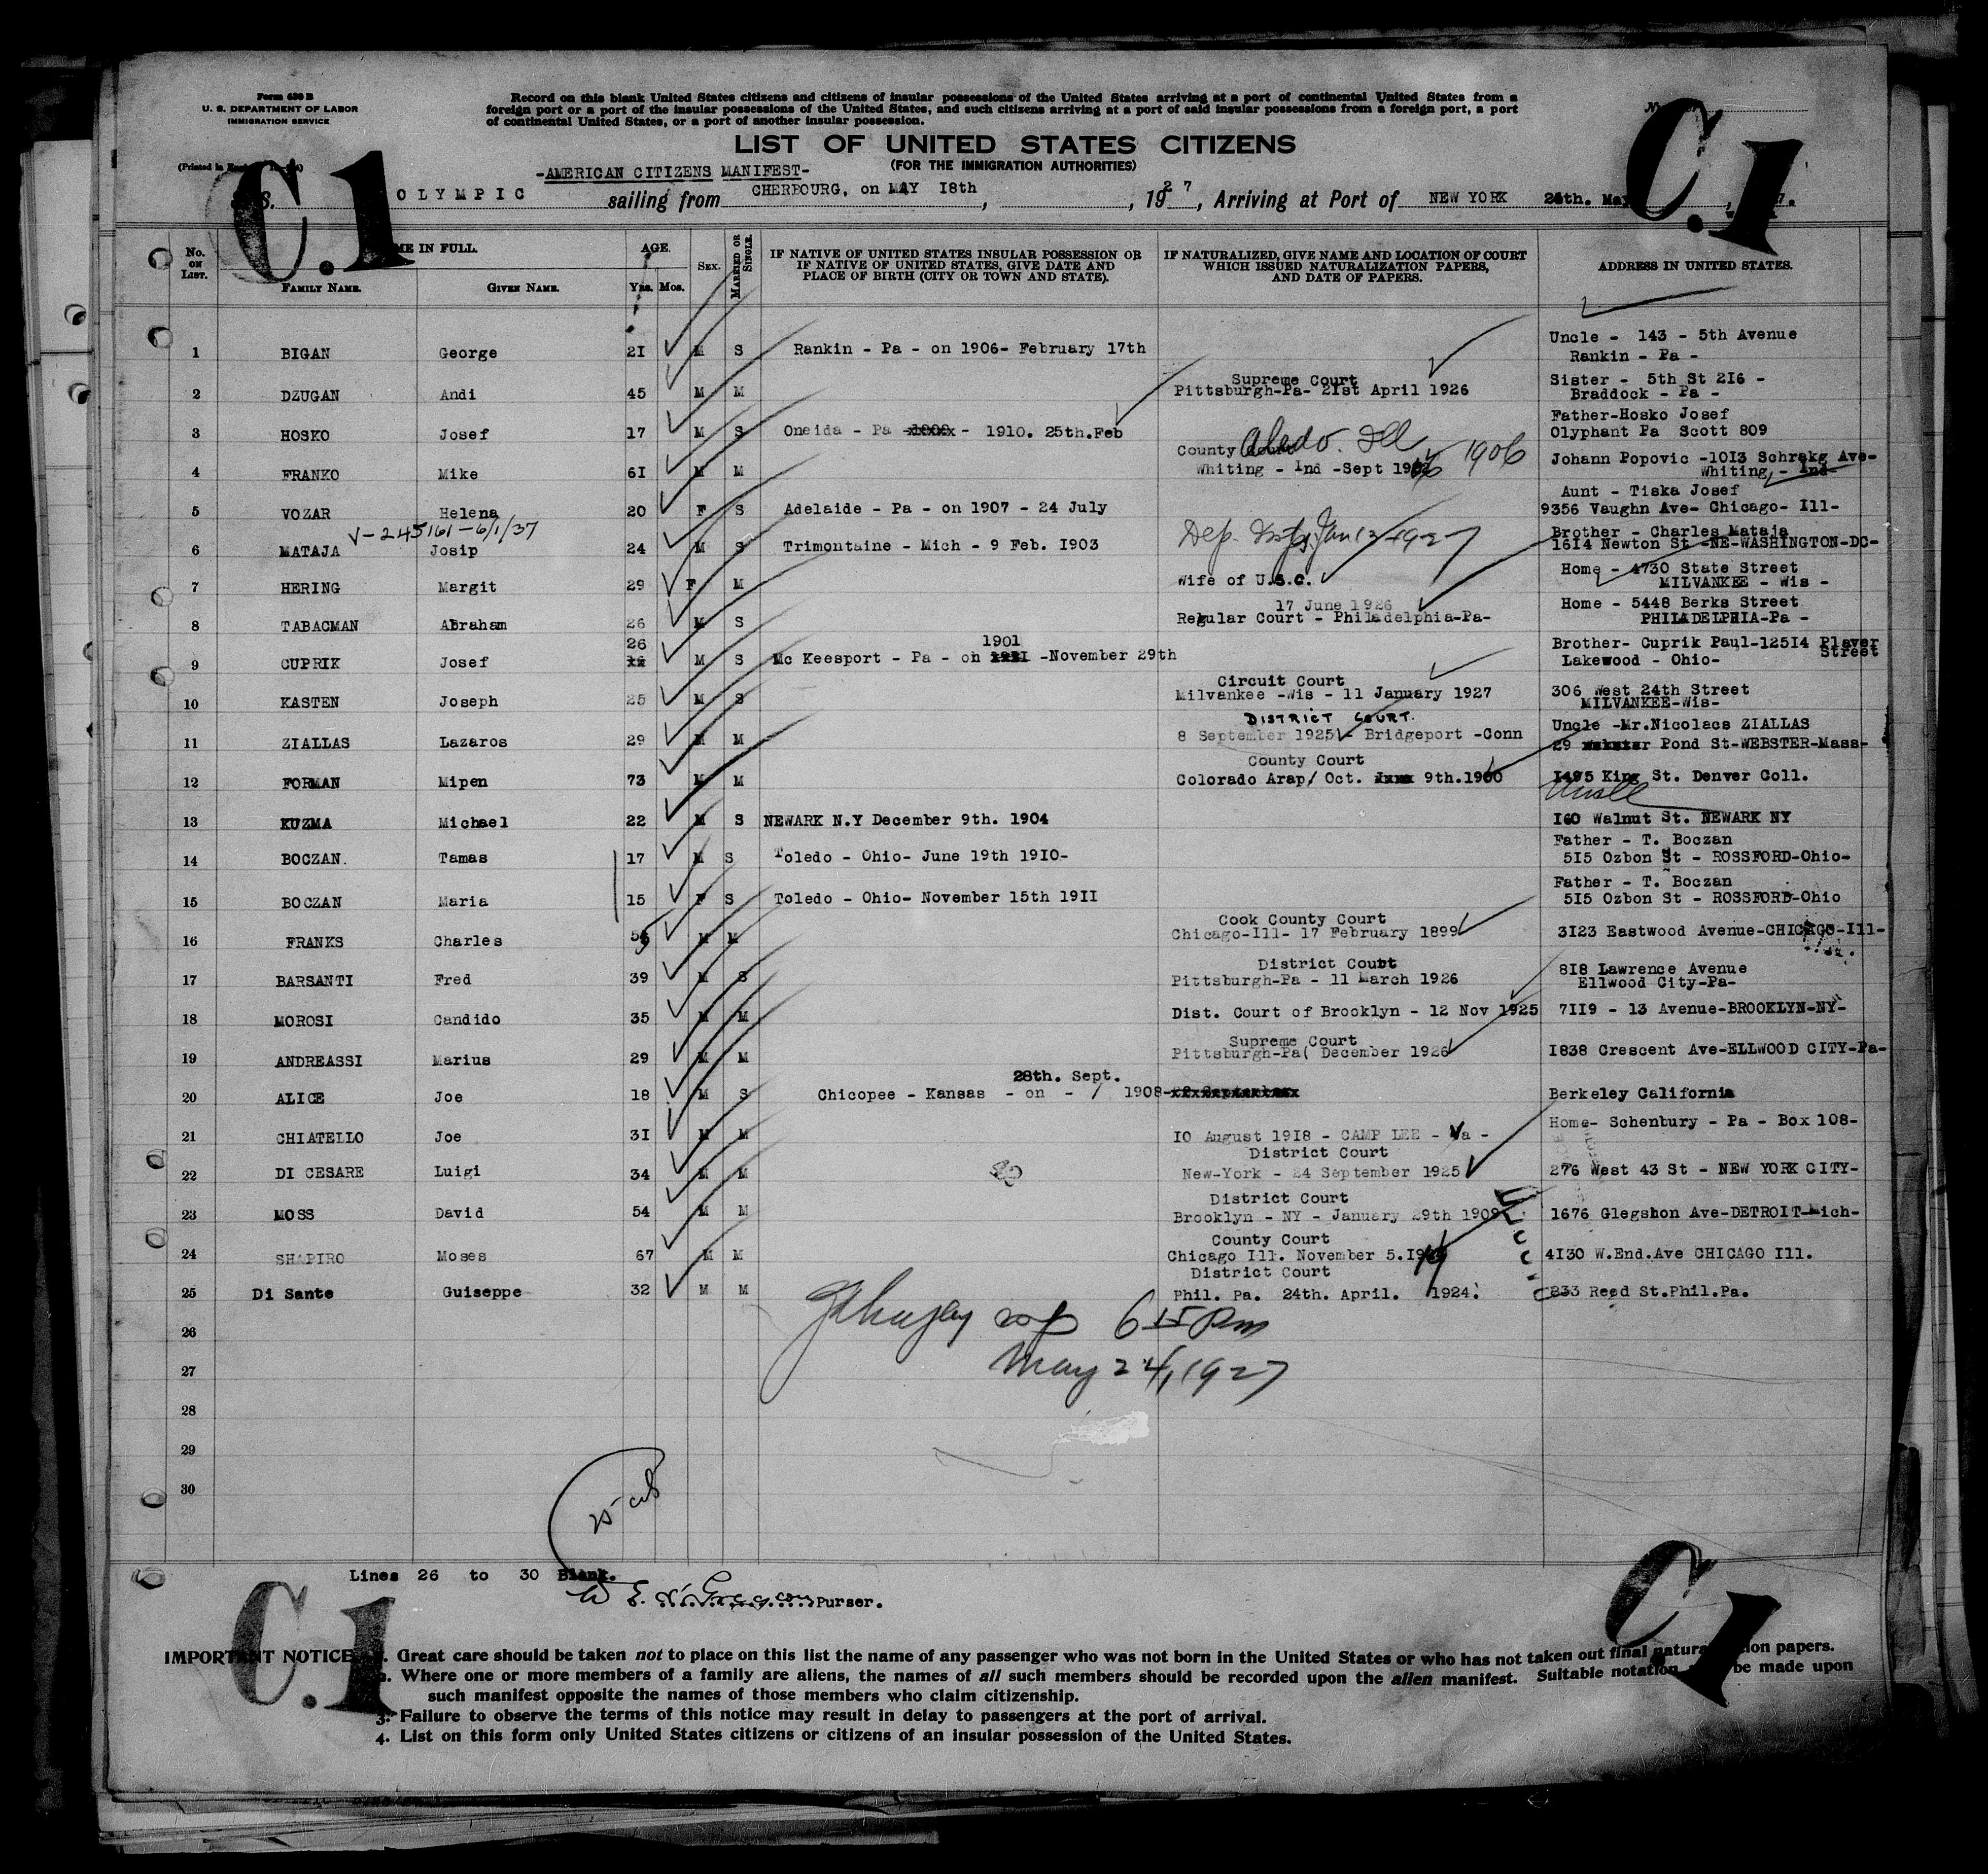 Form 630 B
U. S. DEPARTMENT OF LABOR
IMMIGRATION SERVICE
(Printed in
Record on this blank United States citizens and citizens of insular possessions of the United States arriving at a port of continental United States from a
foreign port or a port of the insular possessions of the United States, and such citizens arriving at a port of said insular possessions from a foreign port, a port
of continental United States, or a port of another insular possession.
LIST OF UNITED STATES CITIZENS
(FOR THE IMMIGRATION AUTHORITIES)
-AMERICAN CITIZENS MANIFEST-
C.1
C.1
S. OLYMPIC sailing from CHERBOURG, on MAY 18th, , 1927, Arriving at Port of NEW YORK 24th. May, 7.
No. ON LIST.
NAME IN FULL.
FAMILY NAME. GIVEN NAME.
AGE.
Yrs. Mos.
SEX.
MARRIED OR SINGLE.
IF NATIVE OF UNITED STATES INSULAR POSSESSION OR
IF NATIVE OF UNITED STATES, GIVE DATE AND
PLACE OF BIRTH (CITY OR TOWN AND STATE).
IF NATURALIZED, GIVE NAME AND LOCATION OF COURT
WHICH ISSUED NATURALIZATION PAPERS,
AND DATE OF PAPERS.
ADDRESS IN UNITED STATES.
Uncle - 143 - 5th Avenue
1 BIGAN George 21 M S Rankin - Pa - on 1906- February 17th Rankin - Pa -
Supreme Court Sister - 5th St 216 -
2 DZUGAN Andi 45 M M Pittsburgh-Pa- 21st April 1926 Braddock - Pa -
Father-Hosko Josef
3 HOSKO Josef 17 M S Oneida - Pa - 1910. 25th.Feb Olyphant Pa Scott 809
County Court Aledo. Ill 1906 Johann Popovic -1013 Schrakg Ave-
4 FRANKO Mike 61 M M Whiting - Ind -Sept 19 Whiting - Ind-
Aunt - Tiska Josef
5 VOZAR Helena 20 F S Adelaide - Pa - on 1907 - 24 July 9356 Vaughn Ave- Chicago- Ill-
V-245161-6/1/37 Brother - Charles Mataja
6 MATAJA Josip 24 M S Trimontaine - Mich - 9 Feb. 1903 Jan 12-1927 1614 Newton St -NE-WASHINGTON-DC-
Home - 4730 State Street
7 HERING Margit 29 F M Wife of U.S.C. MILVANKEE - Wis -
17 June 1926 Home - 5448 Berks Street
8 TABACMAN Abraham 26 M S Regular Court - Philadelphia-Pa- PHILADELPHIA-Pa -
26 1901 Brother- Cuprik Paul-12514 Plover Street
9 CUPRIK Josef M S Mc Keesport - Pa - on -November 29th Lakewood - Ohio-
Circuit Court
10 KASTEN Joseph 25 M S Milvankee -Wis - 11 January 1927 306 West 24th Street
MILVANKEE-Wis-
DISTRICT COURT. Uncle -Mr.Nicolacs ZIALLAS
11 ZIALLAS Lazaros 29 M M 8 September 1925 - Bridgeport -Conn 29 Pond St-WEBSTER-Mass-
County Court
12 FORMAN Mipen 73 M M Colorado Arap/ Oct. 9th.1900 1495 King St. Denver Coll.
13 KUZMA Michael 22 M S NEWARK N.Y December 9th. 1904 160 Walnut St. NEWARK NY
Father - T. Boczan
14 BOCZAN. Tamas 17 M S Toledo - Ohio- June 19th 1910- 515 Ozbon St - ROSSFORD-Ohio-
Father - T. Boczan
15 BOCZAN Maria 15 F S Toledo - Ohio- November 15th 1911 515 Ozbon St - ROSSFORD-Ohio
Cook County Court
16 FRANKS Charles M M Chicago-Ill- 17 February 1899 3123 Eastwood Avenue-CHICAGO-Ill-
District Court 818 Lawrence Avenue
17 BARSANTI Fred 39 M S Pittsburgh-Pa - 11 March 1926 Ellwood City-Pa-
18 MOROSI Candido 35 M M Dist. Court of Brooklyn - 12 Nov 1925 7119 - 13 Avenue-BROOKLYN-NY-
Supreme Court
19 ANDREASSI Marius 29 M M Pittsburgh-Pa( December 1926 1838 Crescent Ave-ELLWOOD CITY-Pa-
28th. Sept.
20 ALICE Joe 18 M S Chicopee - Kansas - on - / 1908- Berkeley California
21 CHIATELLO Joe 31 M M 10 August 1918 - CAMP LEE - Va - Home- Schenbury - Pa - Box 108-
District Court
22 DI CESARE Luigi 34 M M New-York - 24 September 1925 276 West 43 St - NEW YORK CITY-
District Court
23 MOSS David 54 M M Brooklyn - NY - January 29th 1909 1676 Glegshon Ave-DETROIT-Mich-
County Court
24 SHAPIRO Moses 67 M M Chicago Ill. November 5.19 4130 W.End.Ave CHICAGO Ill.
District Court
25 Di Sante Guiseppe 32 M M Phil. Pa. 24th. April. 1924. 833 Reed St.Phil.Pa.
6 15 Pm
26
May 24, 1927
27
28
29
30
25
Lines 26 to 30 Blank.
W E. Purser.
C.1
C.1
IMPORTANT NOTICE. 1. Great care should be taken not to place on this list the name of any passenger who was not born in the United States or who has not taken out final naturalization papers.
2. Where one or more members of a family are aliens, the names of all such members should be recorded upon the alien manifest. Suitable notation be made upon
such manifest opposite the names of those members who claim citizenship.
3. Failure to observe the terms of this notice may result in delay to passengers at the port of arrival.
4. List on this form only United States citizens or citizens of an insular possession of the United States.